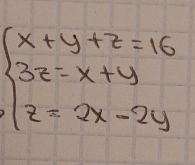 x + y + z = 16
3z = x + y
z = 2x - 2y